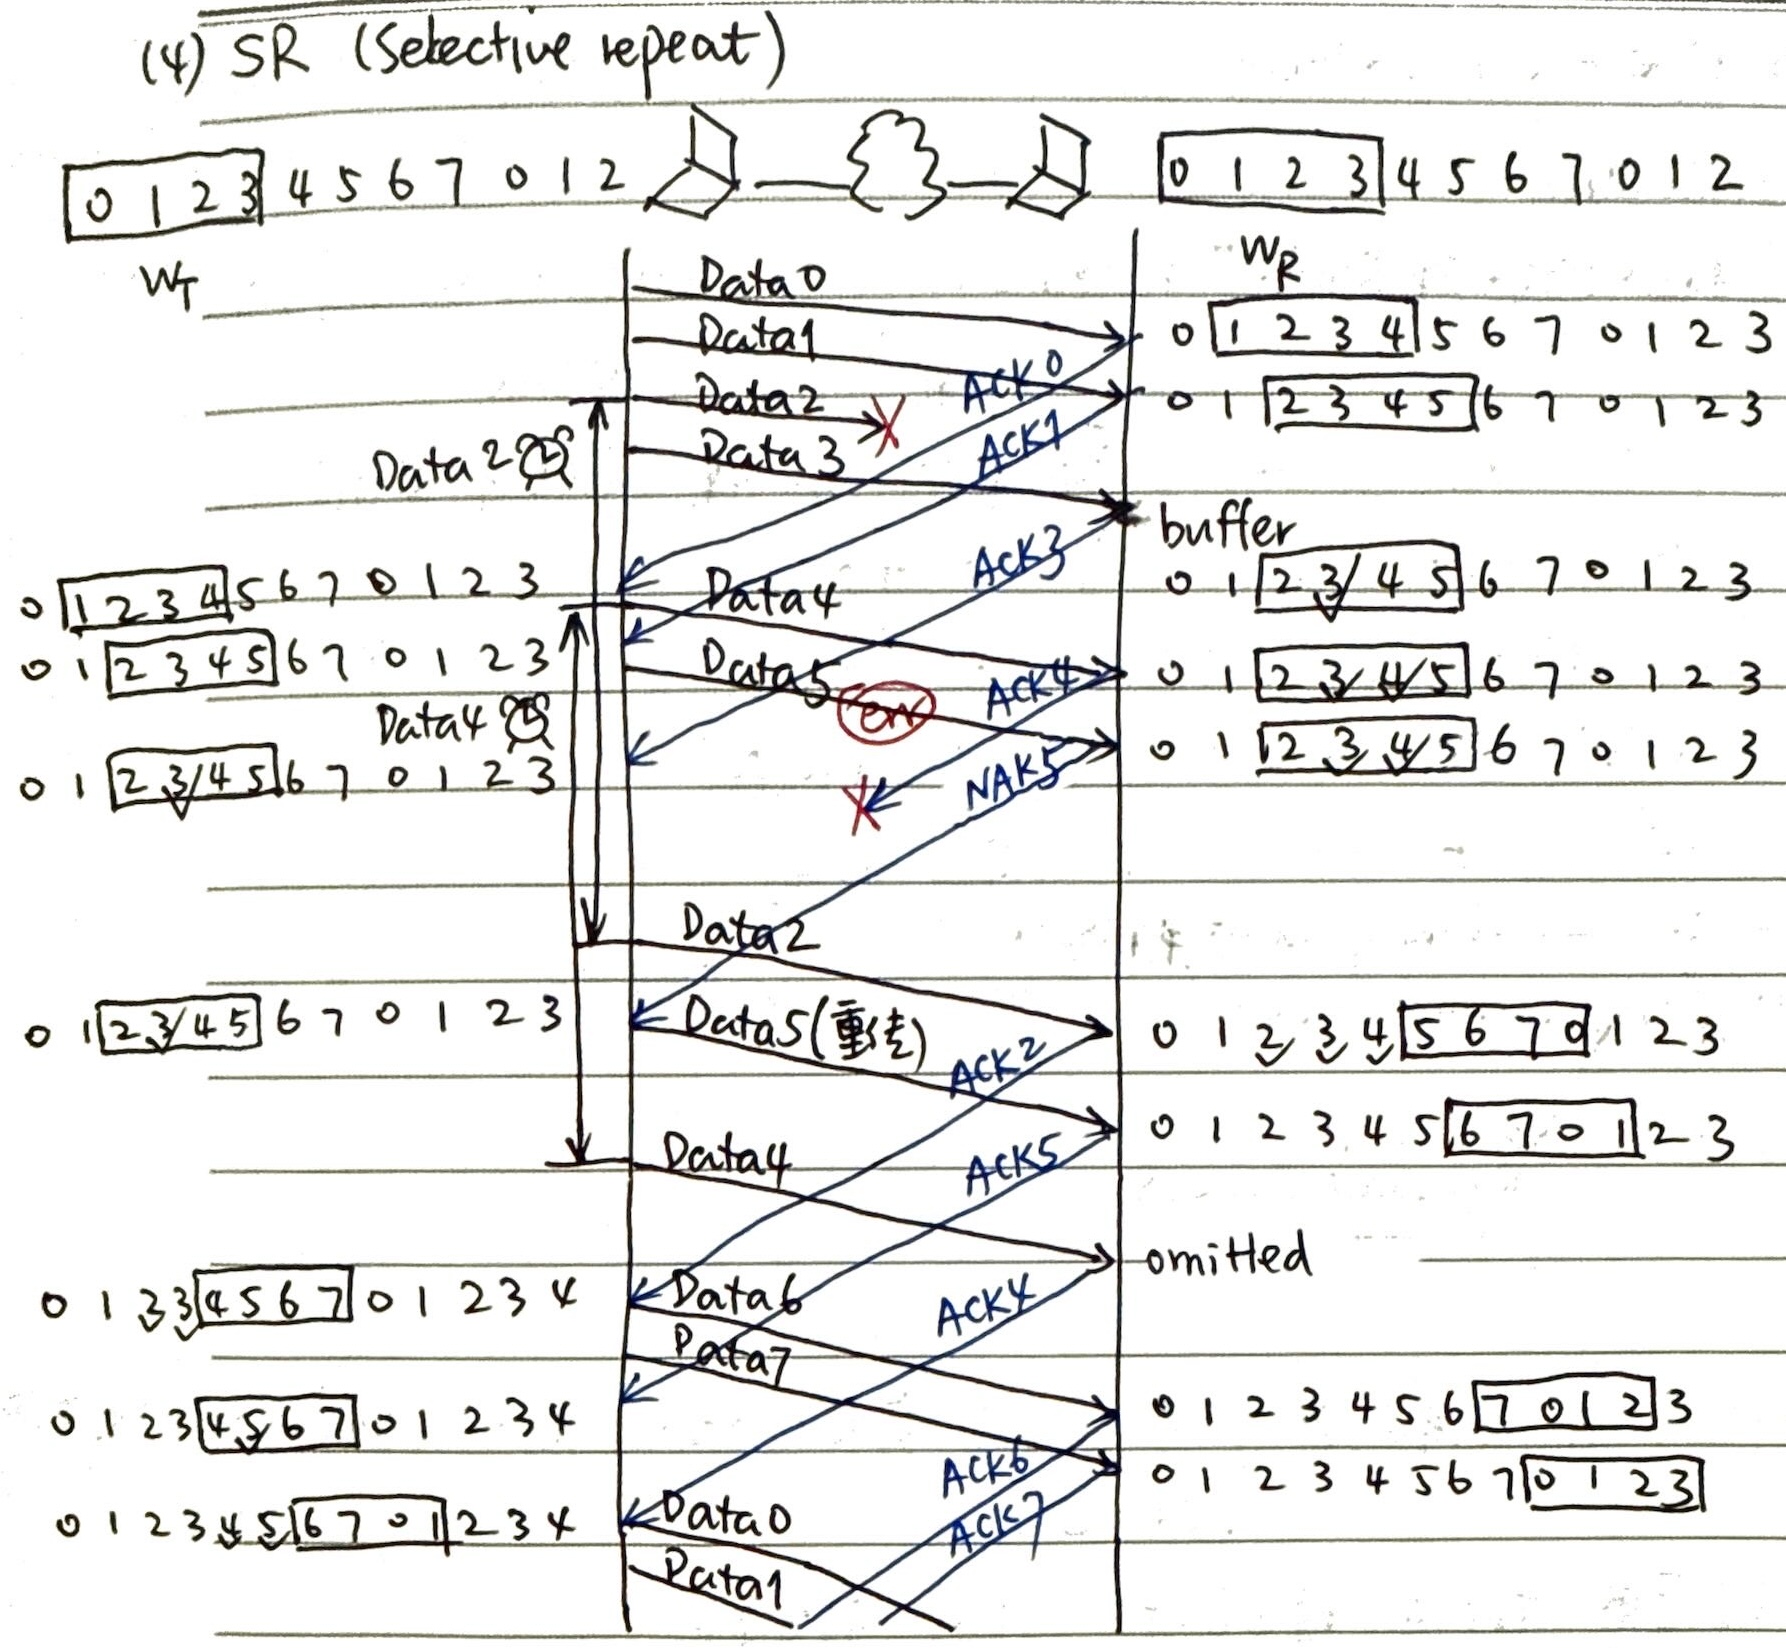 (4) SR (Selective repeat)
0 1 2 3 4 5 6 7 0 1 2
0 1 2 3 4 5 6 7 0 1 2
WT
WR
Data0
0 1 2 3 4 5 6 7 0 1 2 3
Data1
ACK0
Data2
X
0 1 2 3 4 5 6 7 0 1 2 3
Data2
Data3
ACK1
buffer
ACK3
0 1 2 3 4 5 6 7 0 1 2 3
Data4
0 1 2 3 4 5 6 7 0 1 2 3
0 1 2 3 4 5 6 7 0 1 2 3
Data5
ACK4
0 1 2 3 4 5 6 7 0 1 2 3
Data4
err
0 1 2 3 4 5 6 7 0 1 2 3
0 1 2 3 4 5 6 7 0 1 2 3
X
NAK5
Data2
0 1 2 3 4 5 6 7 0 1 2 3
Data5(重送)
0 1 2 3 4 5 6 7 0 1 2 3
ACK2
0 1 2 3 4 5 6 7 0 1 2 3
Data4
ACK5
omitted
0 1 2 3 4 5 6 7 0 1 2 3 4
Data6
ACK4
Data7
0 1 2 3 4 5 6 7 0 1 2 3
0 1 2 3 4 5 6 7 0 1 2 3 4
ACK6
0 1 2 3 4 5 6 7 0 1 2 3
0 1 2 3 4 5 6 7 0 1 2 3 4
Data0
ACK7
Data1